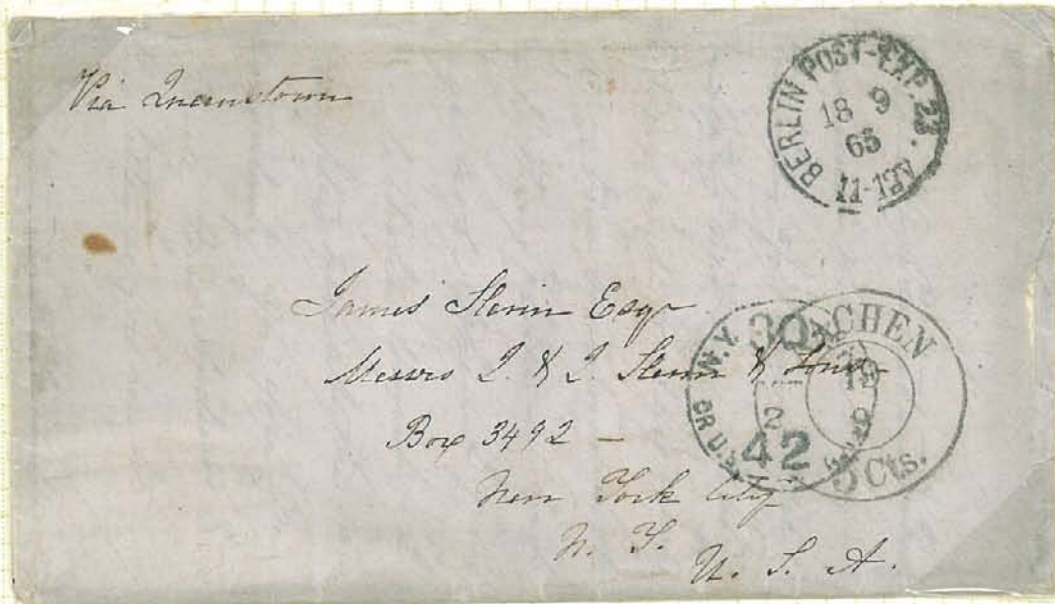 Via Queenstown
BERLIN POST-EXP. 23.
18 9
65
11-12V
James Esqr
Messrs & &
Box 3492 –
New York City
N. Y.
U. S. A.
N.Y. 30
2
OR U.S. 42
AACHEN
19
9
5 Cts.